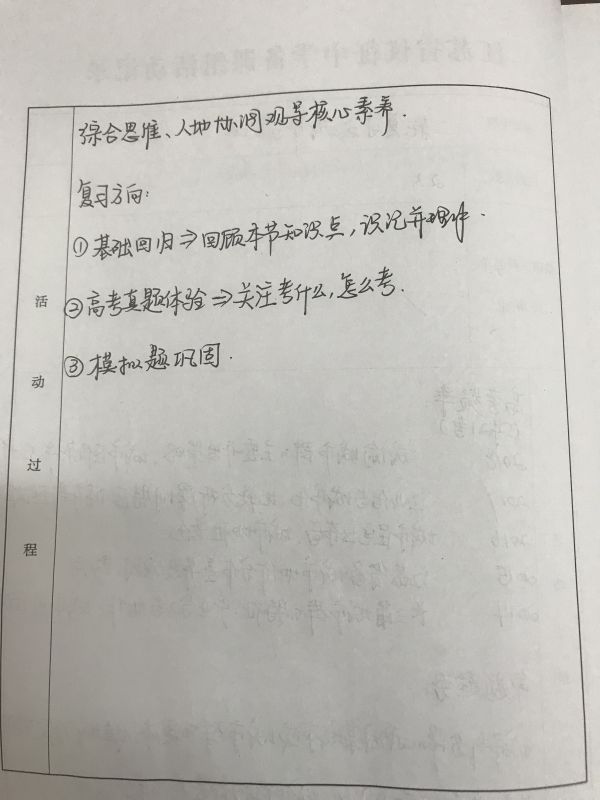 综合思维、人地协调观等核心素养.
复习方向:
①基础回归⇒回顾本节知识点,识记并理解.
②高考真题体验⇒关注考什么,怎么考.
③模拟题巩固.
活
动
过
程